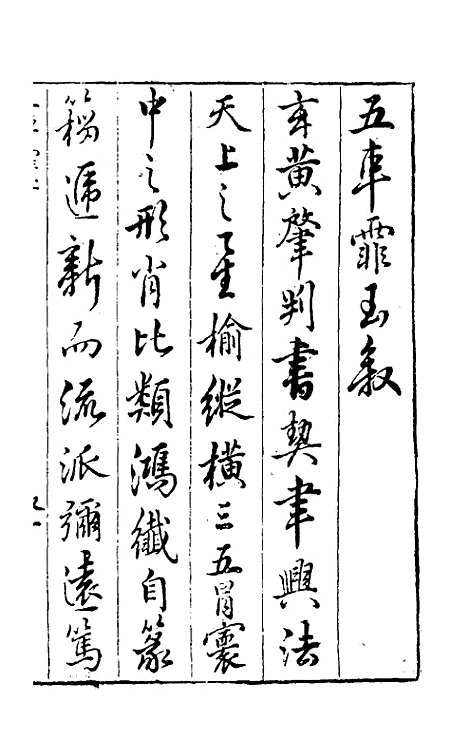 五車霏玉敘
玄黃肇判書契聿興法
天上之星榆縱橫三五胃寰
中之形肖比類鴻纖自篆
籀遞新而流派彌遠篤